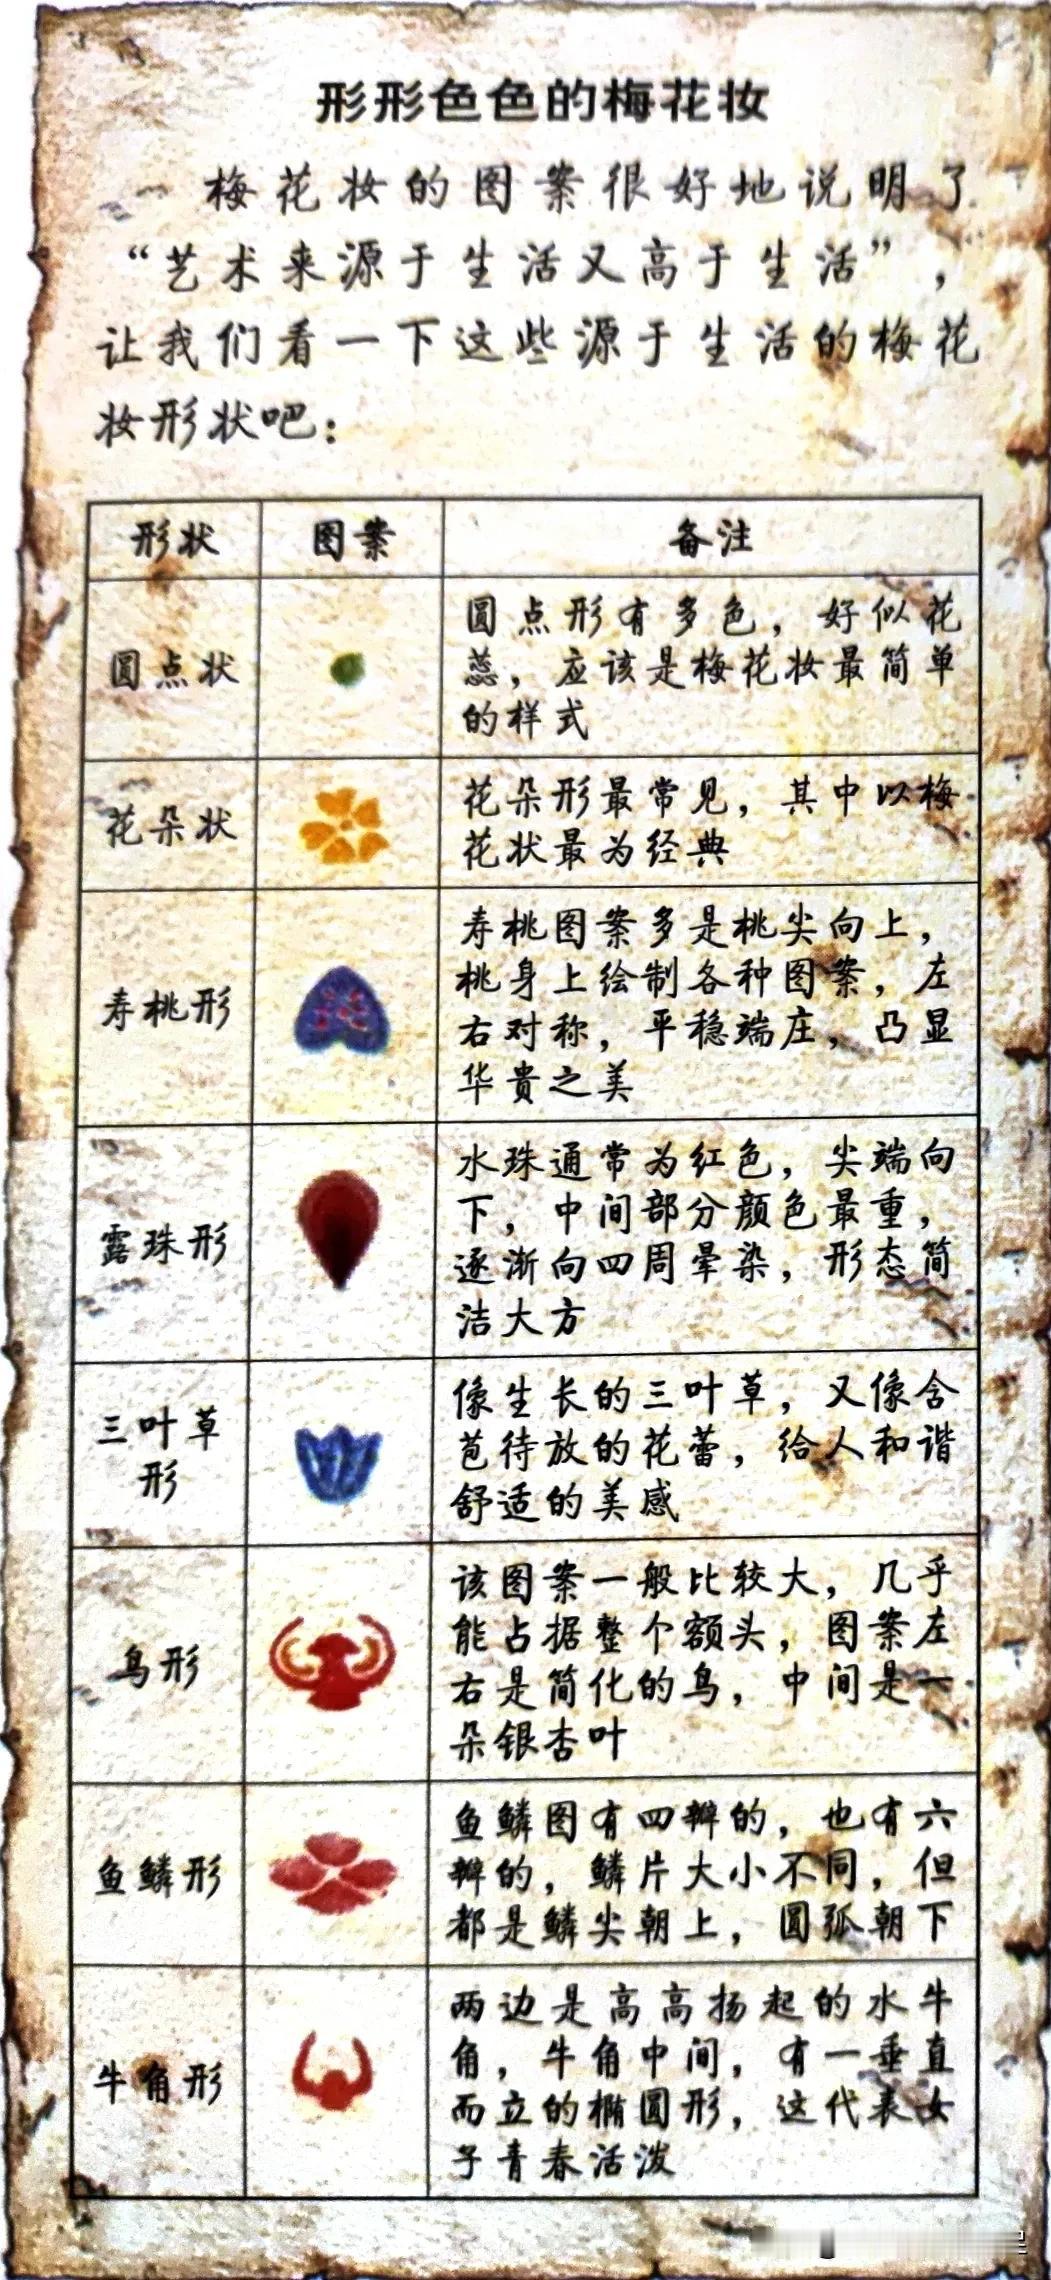 形形色色的梅花妆
梅花妆的图案很好地说明了
“艺术来源于生活又高于生活”，
让我们看一下这些源于生活的梅花
妆形状吧：
形状 图案 备注
圆点状
圆点形有多色，好似花
蕊，应该是梅花妆最简单
的样式
花朵状
花朵形最常见，其中以梅
花状最为经典
寿桃形
寿桃图案多是桃尖向上，
桃身上绘制各种图案，左
右对称，平稳端庄，凸显
华贵之美
露珠形
水珠通常为红色，尖端向
下，中间部分颜色最重，
逐渐向四周晕染，形态简
洁大方
三叶草
形
像生长的三叶草，又像含
苞待放的花蕾，给人和谐
舒适的美感
鸟形
该图案一般比较大，几乎
能占据整个额头，图案左
右是简化的鸟，中间是一
朵银杏叶
鱼鳞形
鱼鳞图有四瓣的，也有六
瓣的，鳞片大小不同，但
都是鳞尖朝上，圆弧朝下
牛角形
两边是高高扬起的水牛
角，牛角中间，有一垂直
而立的椭圆形，这代表女
子青春活泼